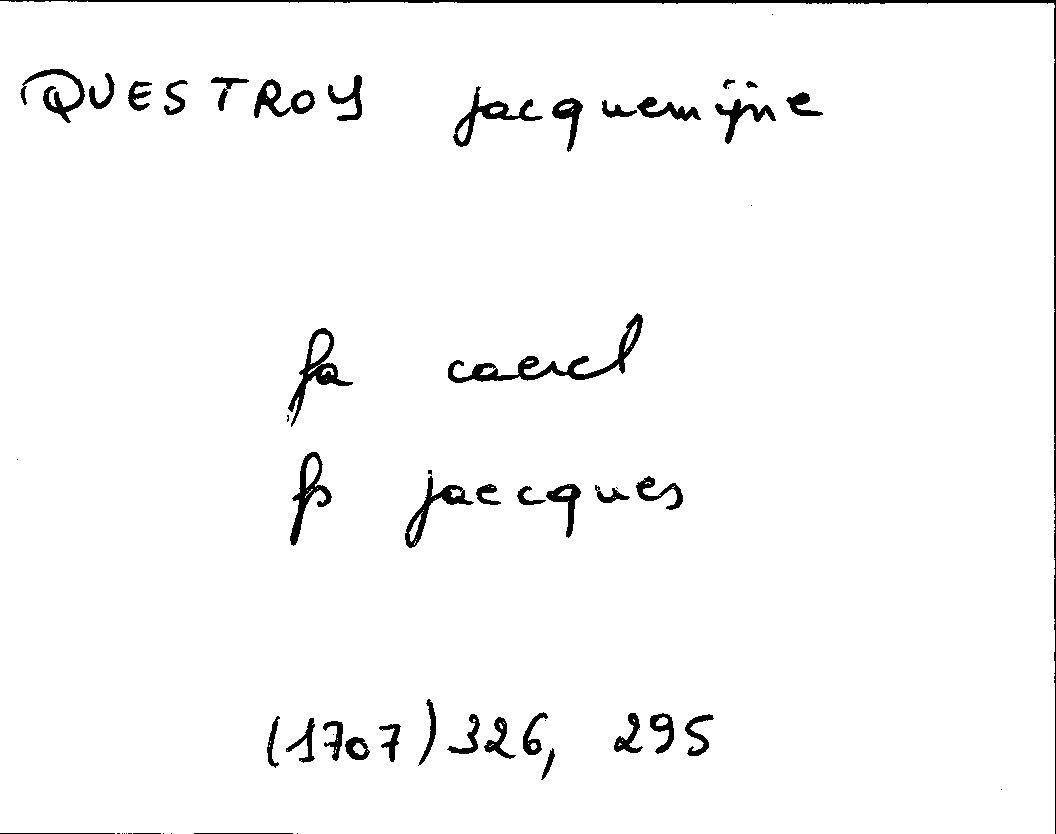 QUESTROY jacquemijne
fa caerel
fs jaecques
(1707) 326, 295